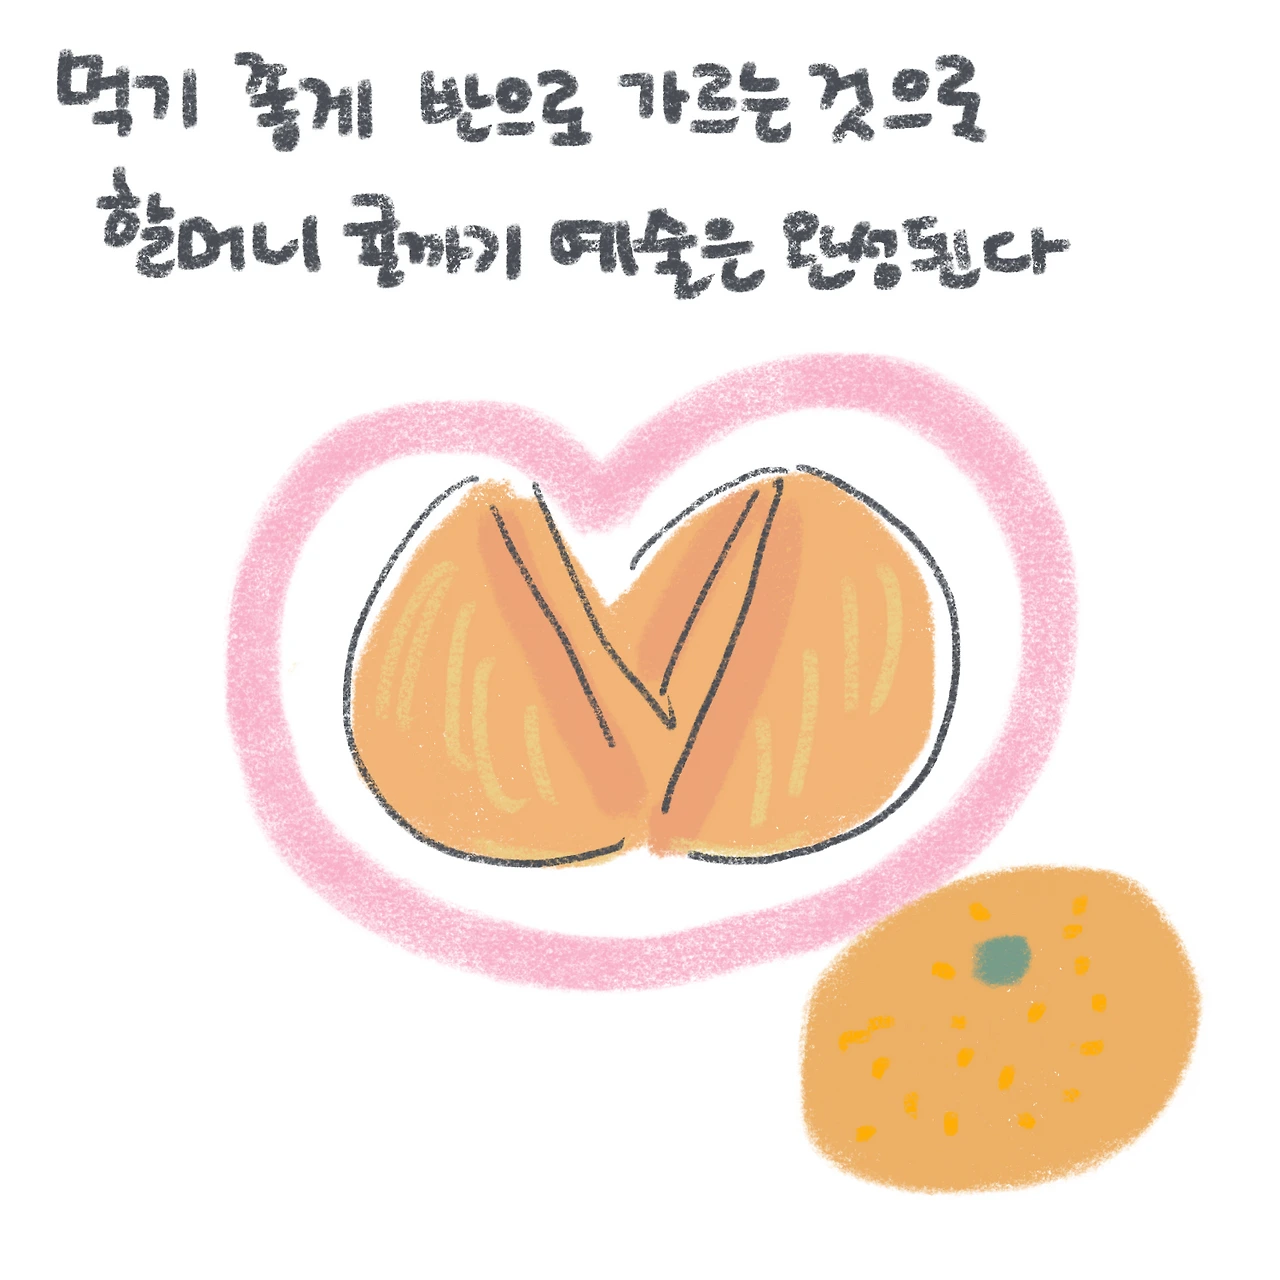 먹기 좋게 반으로 가르는 것으로
할머니 귤까기 예술은 완성된다